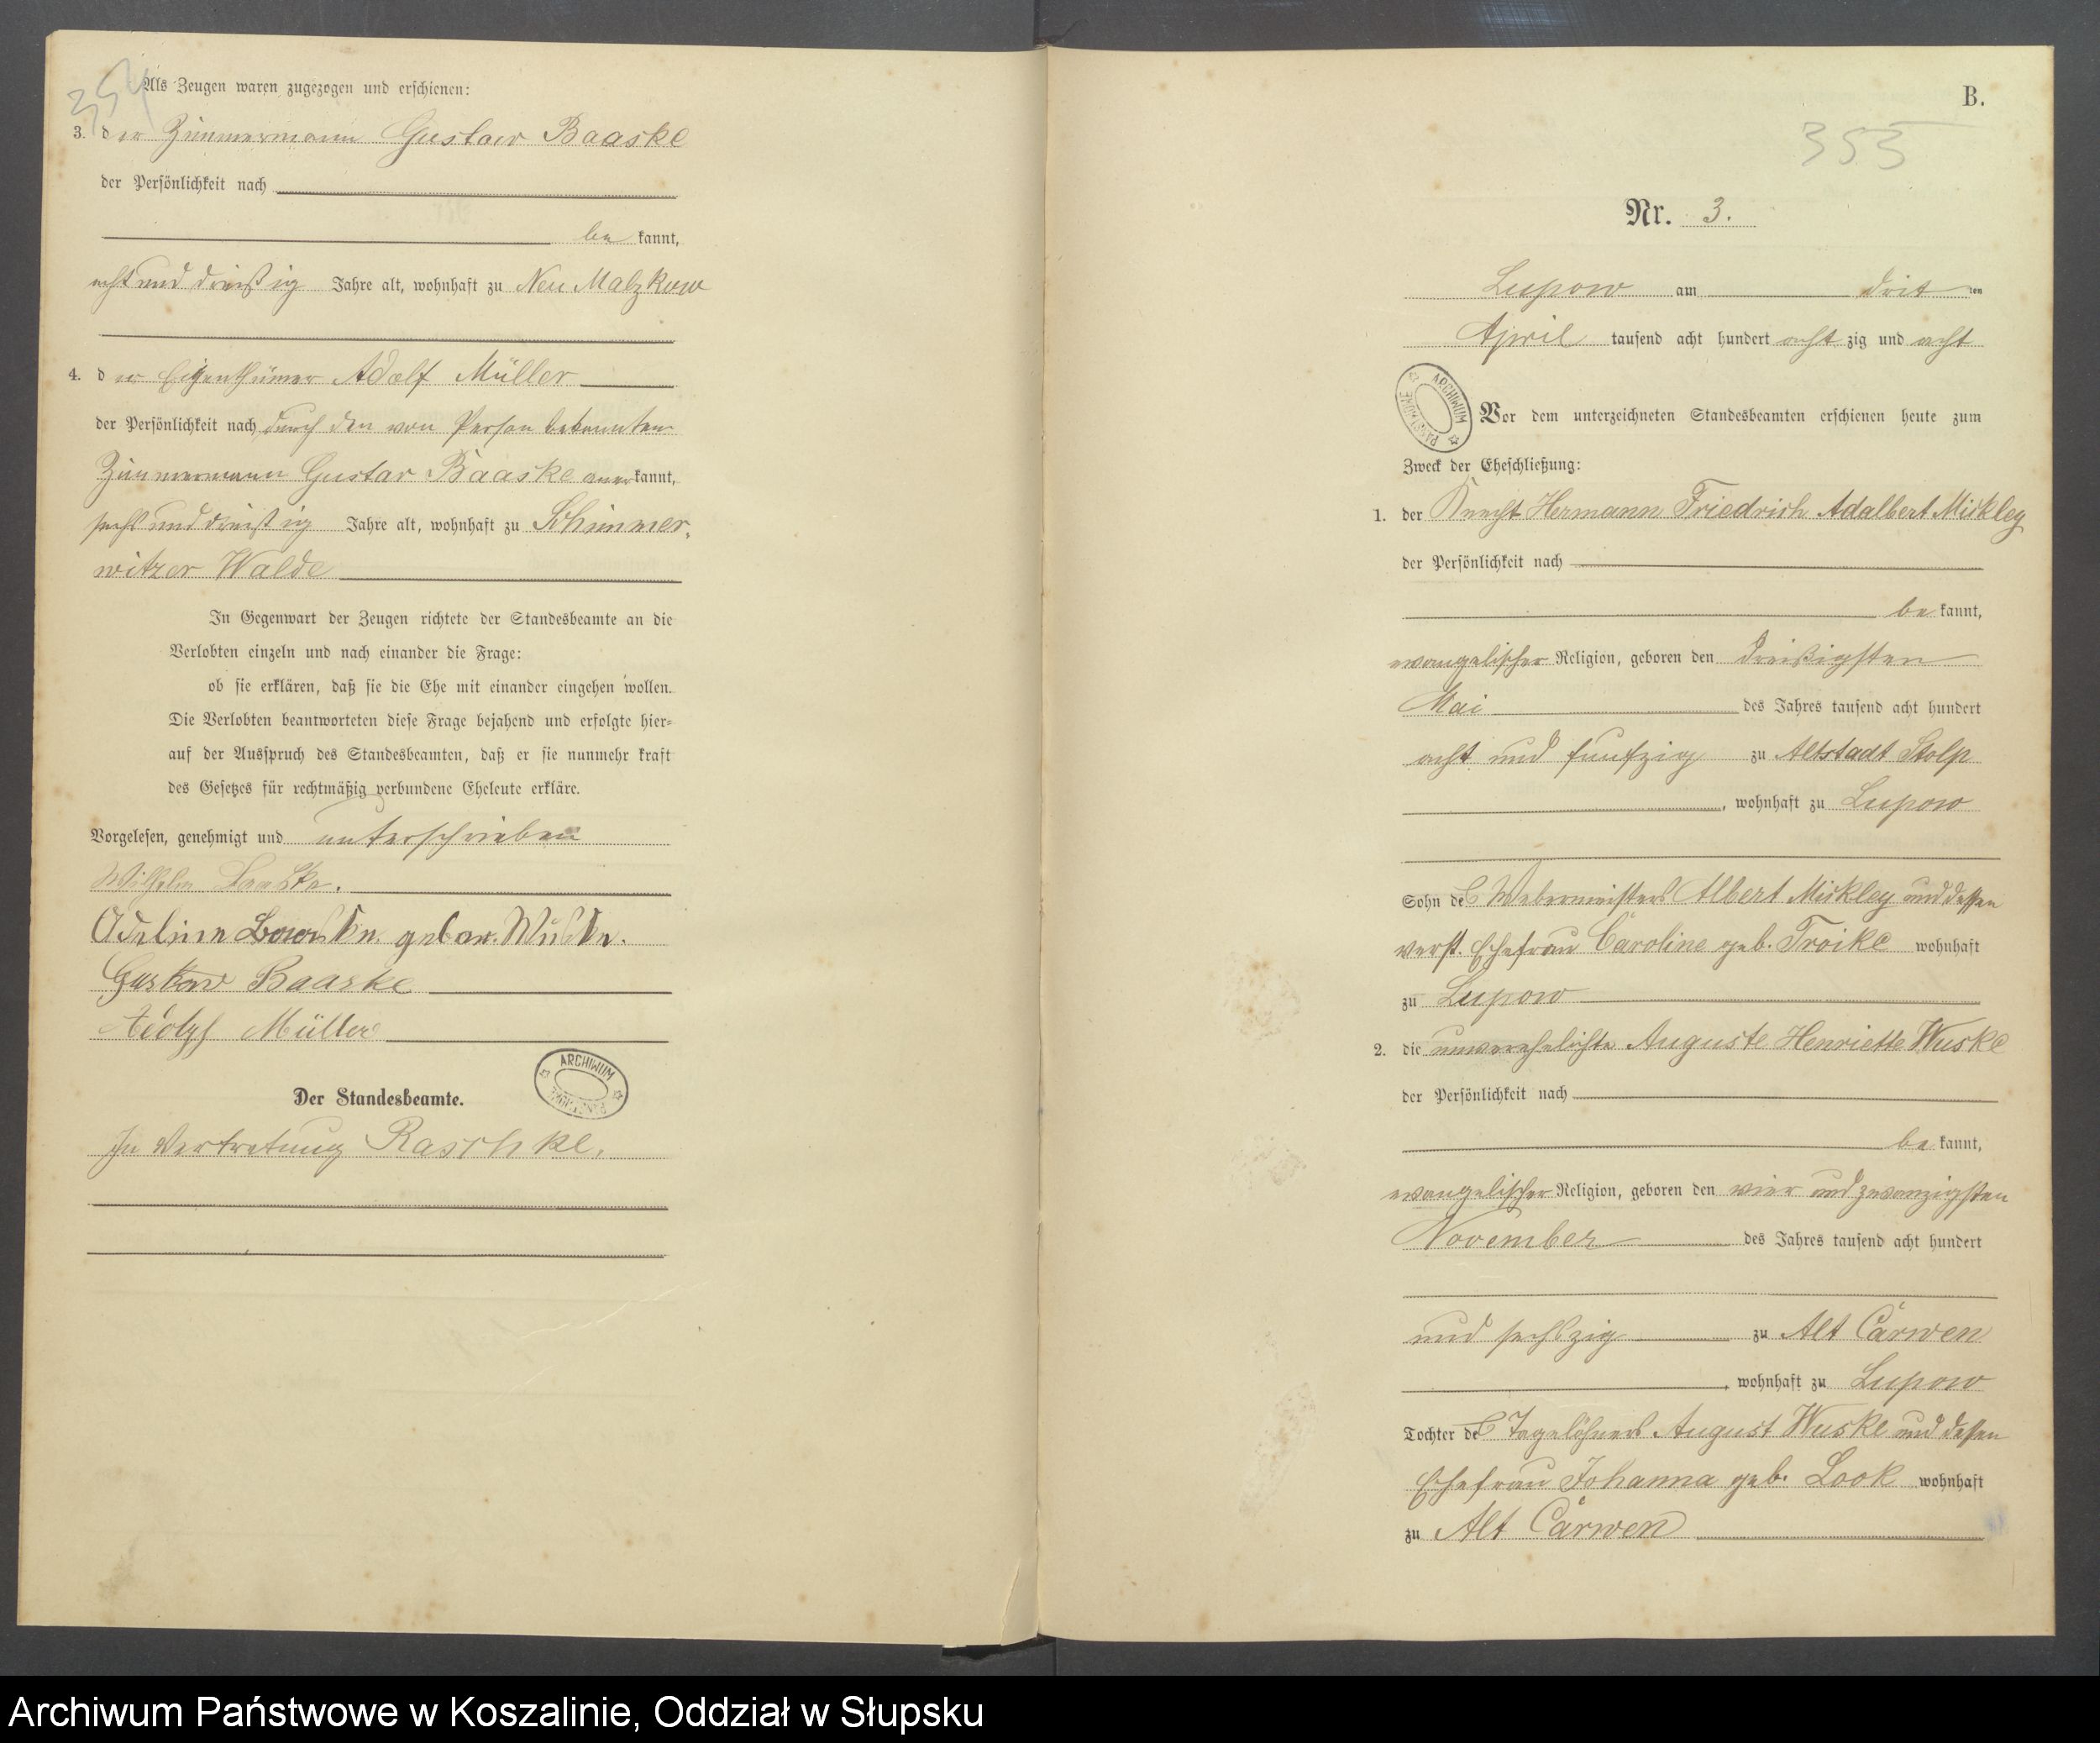 354
Als Zeugen waren zugezogen und erschienen:
3. der Zimmermann Gustav Baaske
der Persönlichkeit nach
be kannt,
acht und dreißig Jahre alt, wohnhaft zu Neu Malzkow
4. der Eigenthümer Adolf Müller
der Persönlichkeit nach durch den von Person bekannten
Zimmermann Gustav Baaske aner kannt,
sechs und dreißig Jahre alt, wohnhaft zu Schimmer-
witzer Walde
In Gegenwart der Zeugen richtete der Standesbeamte an die
Verlobten einzeln und nach einander die Frage:
ob sie erklären, daß sie die Ehe mit einander eingehen wollen.
Die Verlobten beantworteten diese Frage bejahend und erfolgte hier-
auf der Ausspruch des Standesbeamten, daß er sie nunmehr kraft
des Gesetzes für rechtmäßig verbundene Eheleute erkläre.
Vorgelesen, genehmigt und unterschrieben
Wilhelm Baaske.
Adeline Baaske gebor. Wuske.
Gustav Baaske
Adolf Müller
ARCHIWUM
Der Standesbeamte.
In Vertretung Raschke.
B.
355
Nr. 3.
Lupow am drit ten
April tausend acht hundert acht zig und acht
ARCHIWUM PAŃSTWOWE
Vor dem unterzeichneten Standesbeamten erschienen heute zum
Zweck der Eheschließung:
1. der Knecht Hermann Friedrich Adalbert Miskley
der Persönlichkeit nach
be kannt,
evangelischer Religion, geboren den dreißigsten
Mai des Jahres tausend acht hundert
acht und funfzig zu Altstadt Stolp
, wohnhaft zu Lupow
Sohn des Webermeisters Albert Miskley und dessen
verst. Ehefrau Caroline geb. Troike wohnhaft
zu Lupow
2. die unverehelichte Auguste Henriette Wuske
der Persönlichkeit nach
be kannt,
evangelischer Religion, geboren den vier und zwanzigsten
November des Jahres tausend acht hundert
und sechszig zu Alt Carwen
, wohnhaft zu Lupow
Tochter des Tagelöhners August Wuske und dessen
Ehefrau Johanna geb. Look wohnhaft
zu Alt Carwen
Archiwum Państwowe w Koszalinie, Oddział w Słupsku